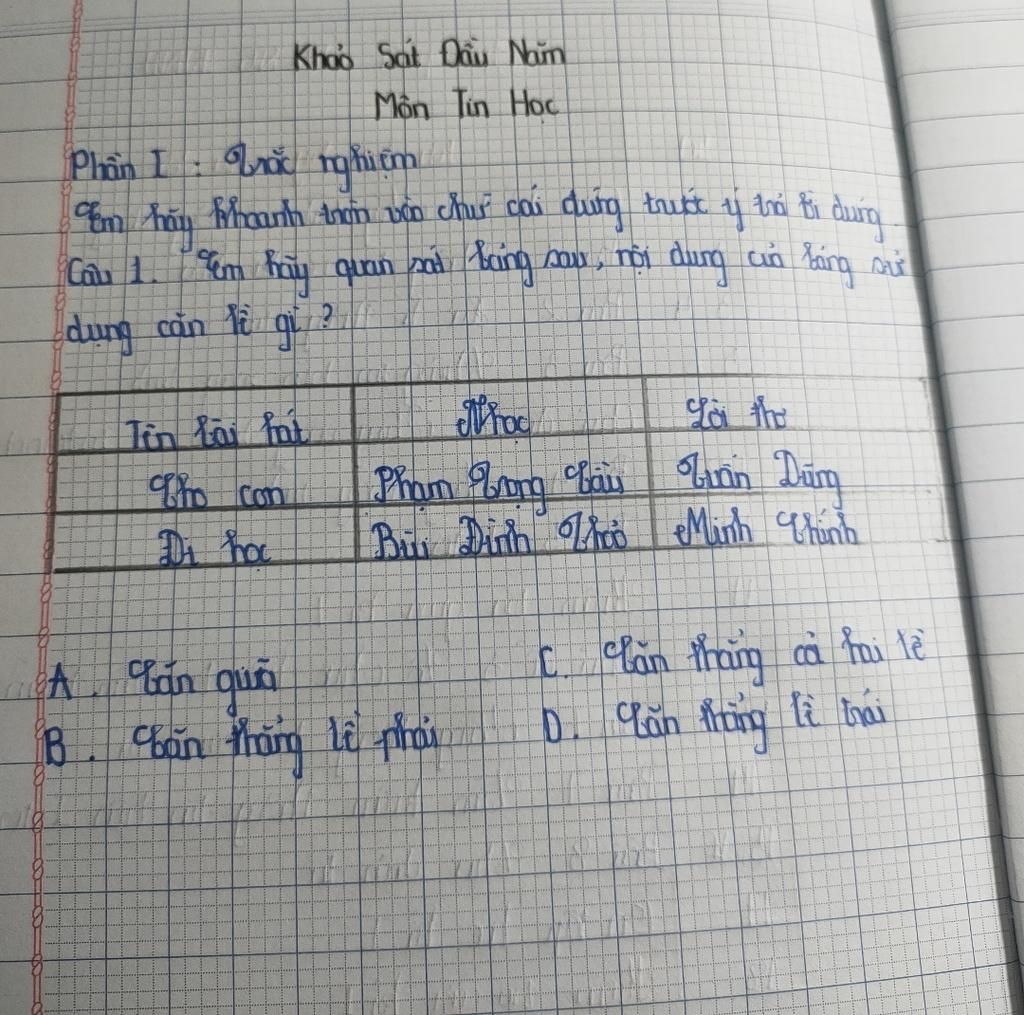 Khảo Sát Đầu Năm
Môn Tin Học
Phần I : Trắc nghiệm
Em hãy khoanh tròn vào chữ cái đứng trước ý trả lời đúng
Câu 1. Em hãy quan sát bảng sau, nội dung của bảng sử
dụng căn lề gì ?
Tên bài hát Nhạc Lời thơ
Cho con Phạm Trọng Cầu Tuấn Dũng
Đi học Bùi Đình Thảo Minh Chính
A. Căn giữa C. Căn thẳng cả hai lề
B. Căn thẳng lề phải D. Căn thẳng lề trái